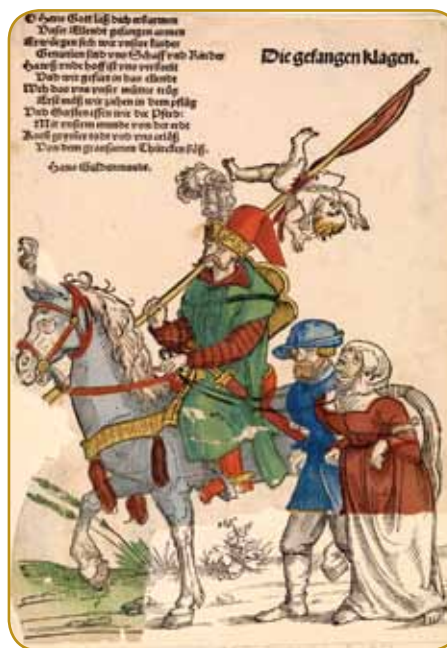 O Gott laß dich erbarmen
Unser Ellendt gefangen armen
Erwürgen sich wir unser kinder
Genumen sind uns Schaff und Rinder
Hawß unde hoff ist uns
Und wir gefürt in das ellende
Weh das uns unser mütter trüg
Erst müß wir ziehen in dem pflüg
Und Gersten essen wie die Pferd:
Mit unserm munde von der erdt
todt und uns erlöß
Von dem grausamen Thürcken böß.
Hans Guldenmundt.
Die gefangen klagen.